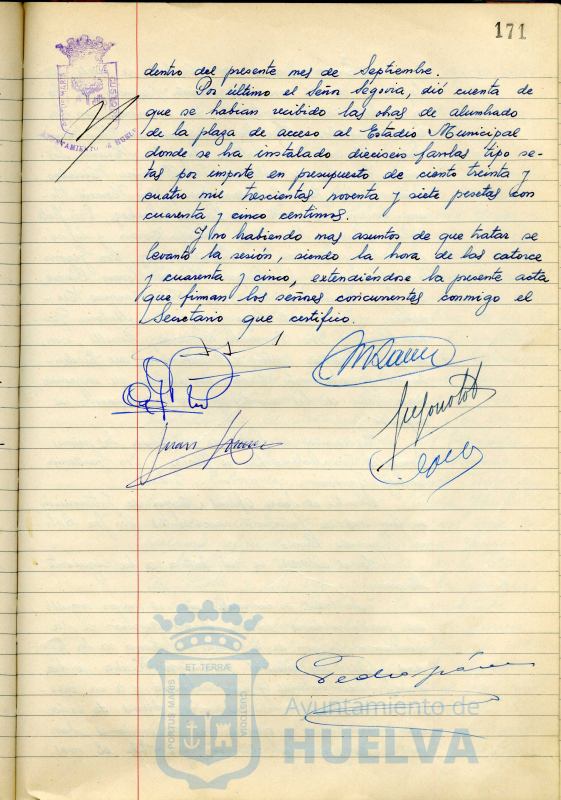 171
dentro del presente mes de Septiembre.
Por último el Señor Segovia, dió cuenta de
que se habian recibido las obras de alumbrado
de la plaza de acceso al Estadio Municipal
donde se ha instalado dieciseis farolas tipo se-
tas por importe en presupuesto de ciento treinta y
cuatro mil trescientas noventa y siete pesetas con
cuarenta y cinco centimos.
Y no habiendo mas asuntos de que tratar se
levantó la sesión, siendo la hora de las catorce
y cuarenta y cinco, extendiéndose la presente acta
que firman los señores concurrentes conmigo el
Secretario que certifico.
Juan
Pedro
ET TERRÆ
PORTUS MARIS
CUSTODIA
Ayuntamiento de
HUELVA